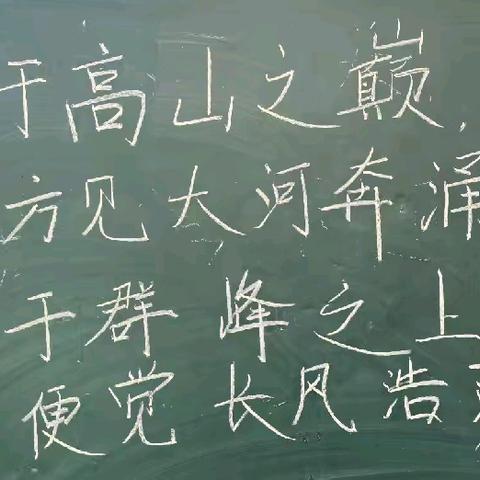 于高山之巅,
方见大河奔涌
于群峰之上
便觉长风浩